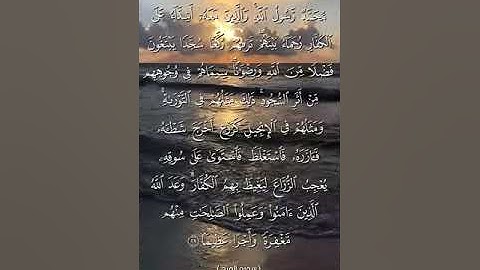 مُّحَمَّدٌ رَّسُولُ ٱللَّهِ وَٱلَّذِينَ مَعَهُۥٓ أَشِدَّآءُ عَلَى
ٱلْكُفَّارِ رُحَمَآءُ بَيْنَهُمْ تَرَىٰهُمْ رُكَّعًا سُجَّدًا يَبْتَغُونَ
فَضْلًا مِّنَ ٱللَّهِ وَرِضْوَٰنًا سِيمَاهُمْ فِى وُجُوهِهِم
مِّنْ أَثَرِ ٱلسُّجُودِ ذَٰلِكَ مَثَلُهُمْ فِى ٱلتَّوْرَىٰةِ
وَمَثَلُهُمْ فِى ٱلْإِنجِيلِ كَزَرْعٍ أَخْرَجَ شَطْـَٔهُۥ
فَـَٔازَرَهُۥ فَٱسْتَغْلَظَ فَٱسْتَوَىٰ عَلَىٰ سُوقِهِۦ
يُعْجِبُ ٱلزُّرَّاعَ لِيَغِيظَ بِهِمُ ٱلْكُفَّارَ وَعَدَ ٱللَّهُ
ٱلَّذِينَ ءَامَنُوا۟ وَعَمِلُوا۟ ٱلصَّٰلِحَٰتِ مِنْهُم
مَّغْفِرَةً وَأَجْرًا عَظِيمًۢا ٢٩